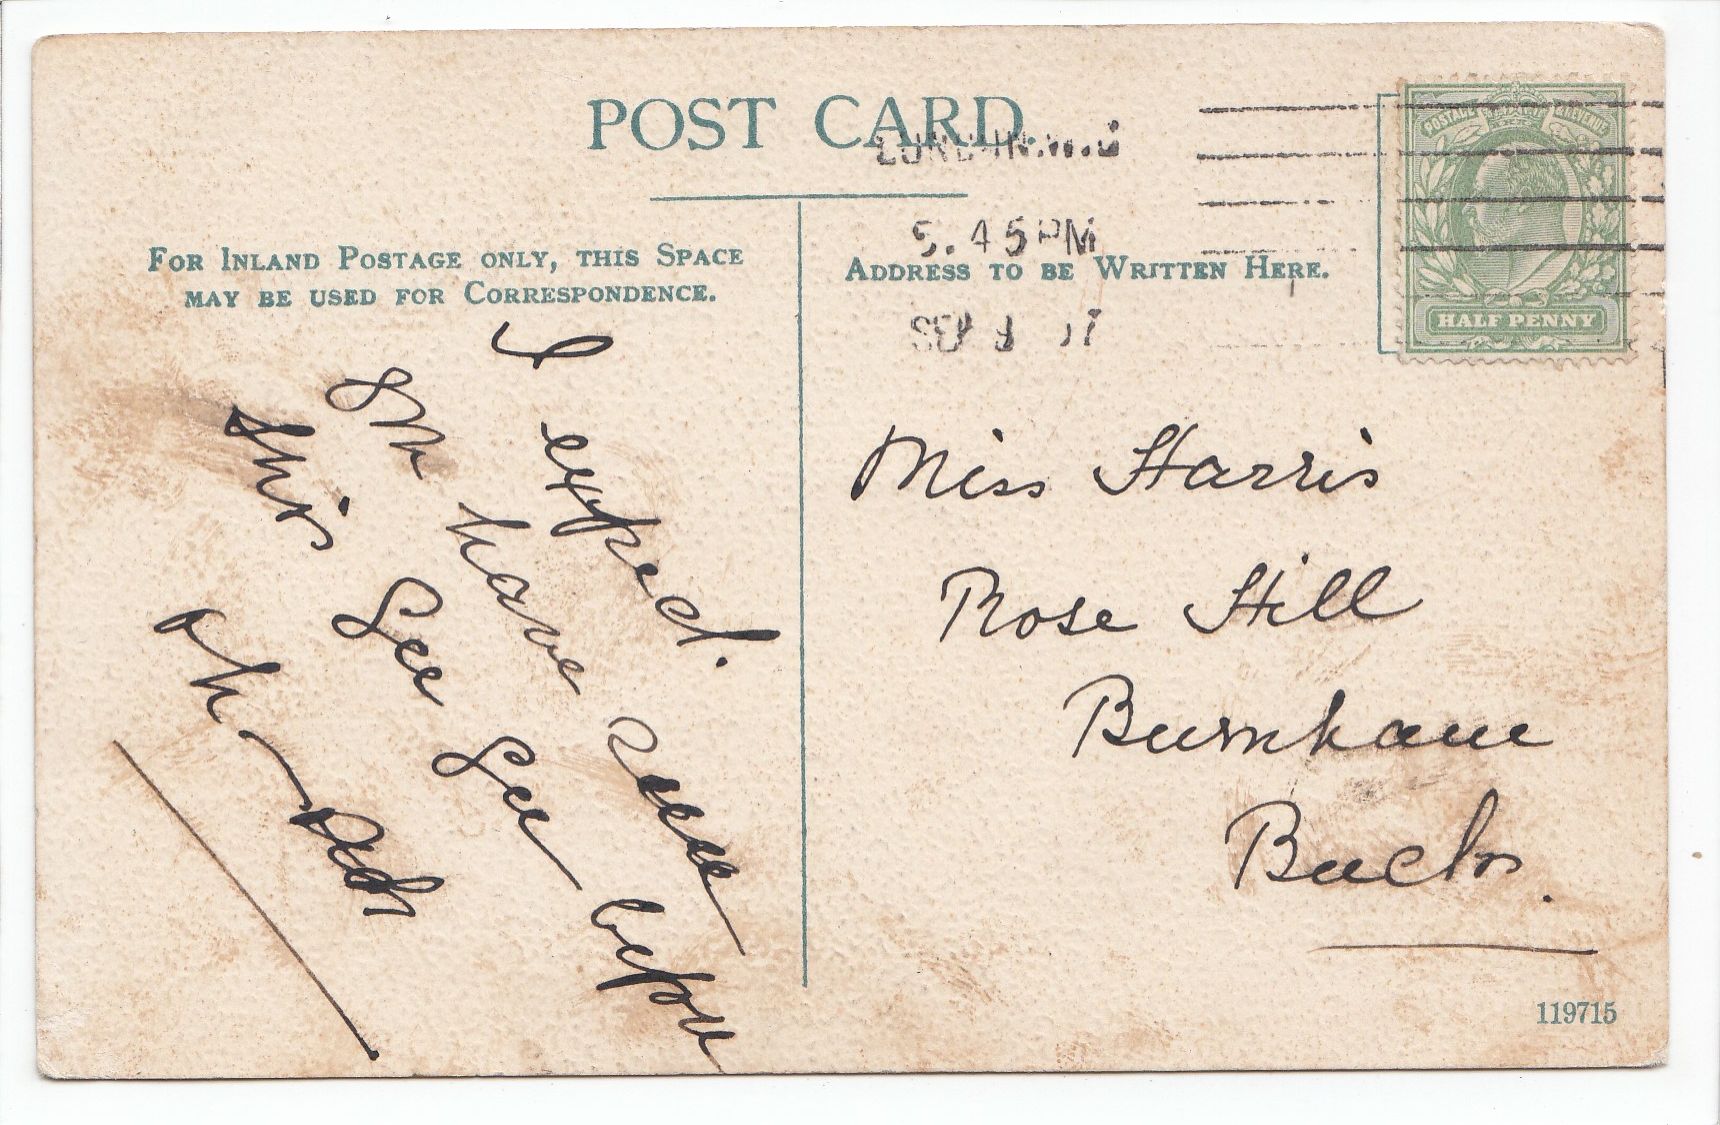 POST CARD
FOR INLAND POSTAGE ONLY, THIS SPACE
MAY BE USED FOR CORRESPONDENCE.
ADDRESS TO BE WRITTEN HERE.
LONDON.W.C
5.45PM
SEP 07
POSTAGE REVENUE
HALF PENNY
I expect
have seen
this
before
Miss Harris
Rose Hill
Burnham
Bucks.
119715